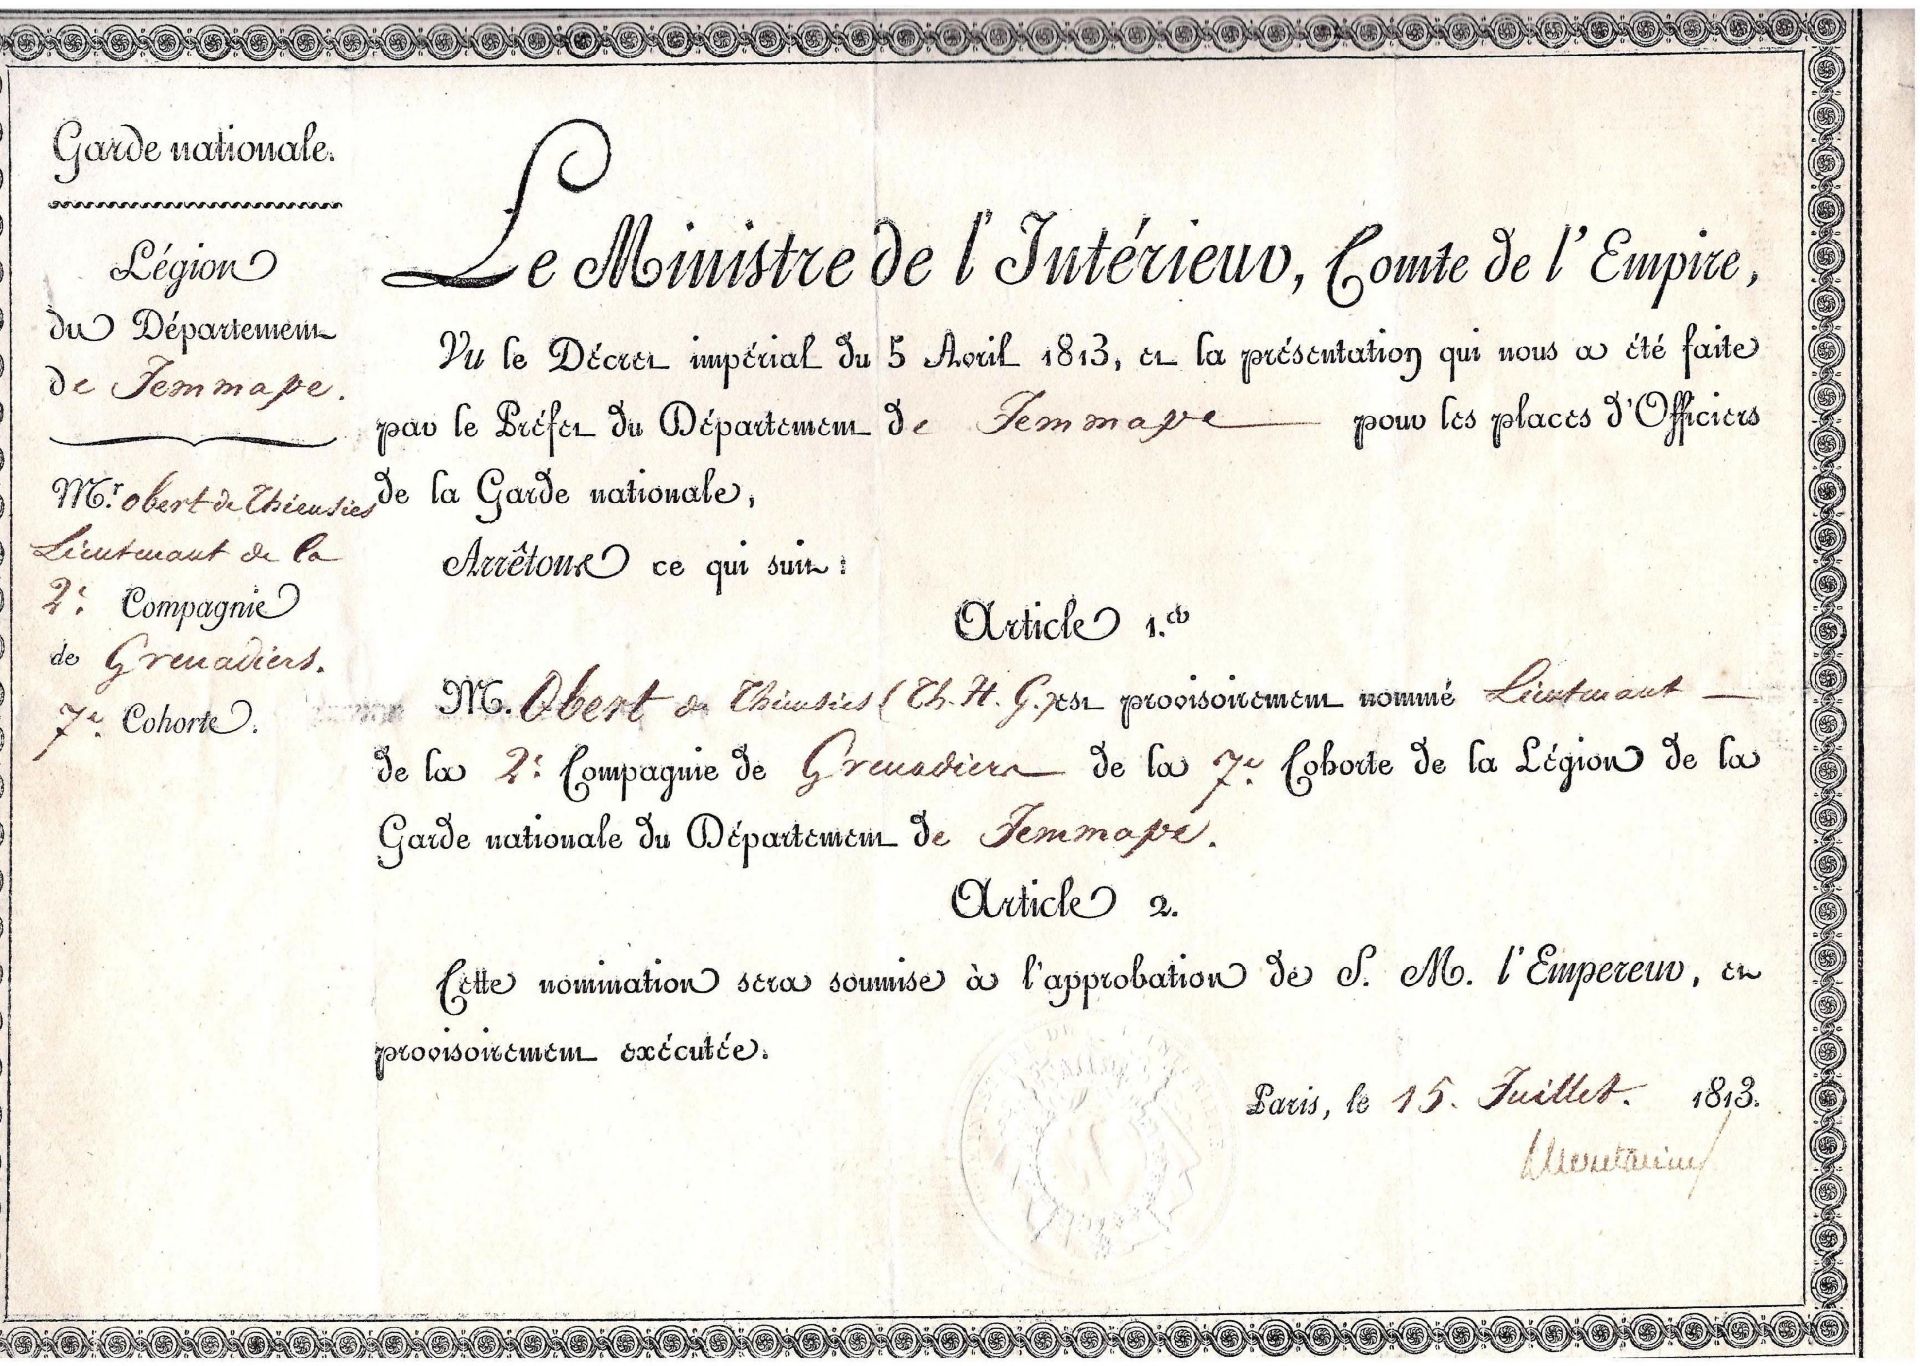 Garde nationale.
Légion
du Département
de Jemmape.
Mr. Obert de Thieusies
Lieutenant de la
2e. Compagnie
de Grenadiers.
7e. Cohorte.
Le Ministre de l'Intérieur, Comte de l'Empire,
Vu le Décret impérial du 5 Avril 1813, et la présentation qui nous a été faite
par le Préfet du Département de Jemmape pour les places d'Officiers
de la Garde nationale,
Arrêtons ce qui suit :
Article 1.er
M. Obert de Thieusies (Th. H. G.) est provisoirement nommé Lieutenant
de la 2e. Compagnie de Grenadiers de la 7e. Cohorte de la Légion de la
Garde nationale du Département de Jemmape.
Article 2.
Cette nomination sera soumise à l'approbation de S. M. l'Empereur, et
provisoirement exécutée.
Paris, le 15. Juillet. 1813.